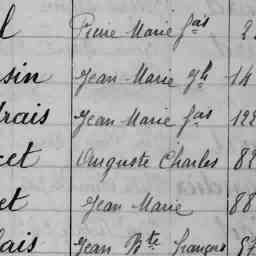 l Pierre Marie fas 2
sin Jean-Marie gh 14
rais Jean Marie fas 122
cet Auguste Charles 82
et Jean Marie 88
lais Jean Bte françois 57